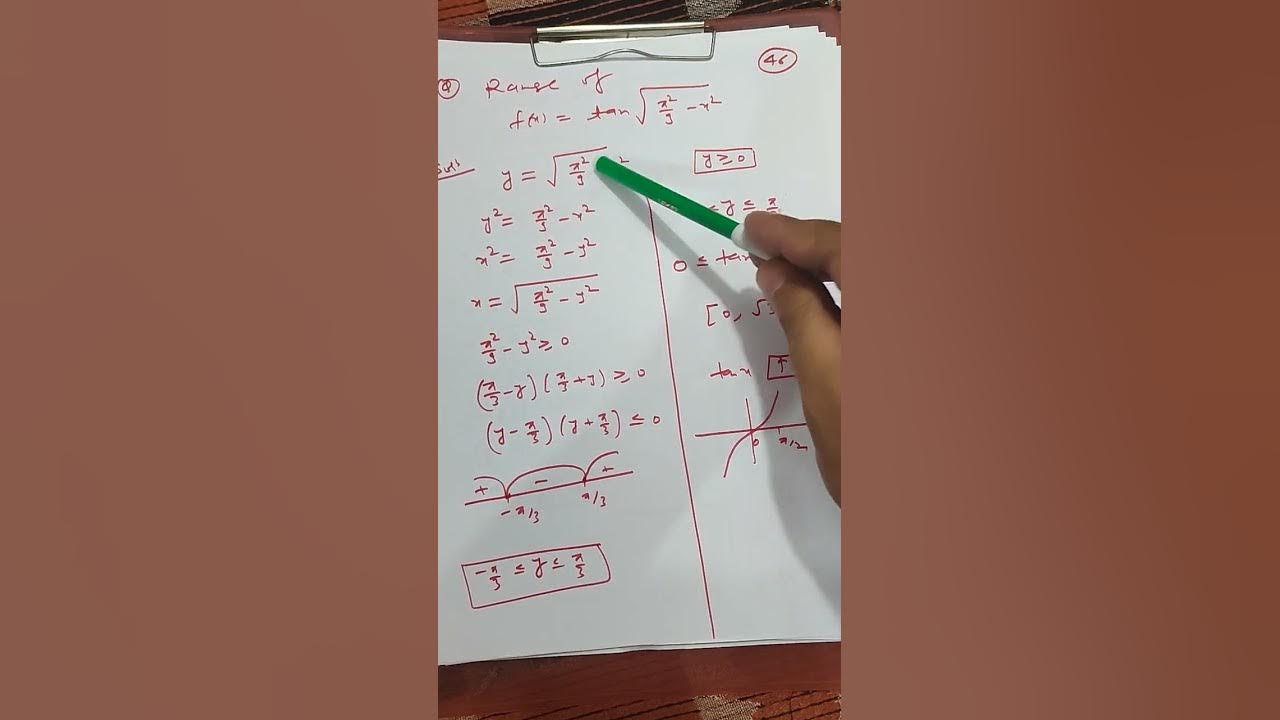 46
Q Range of
f(x) = tan √(π²/9 - x²)
Solⁿ
y = √(π²/9
y² = π²/9 - x²
x² = π²/9 - y²
x = √(π²/9 - y²)
π²/9 - y² ≥ 0
(π/3 - y) (π/3 + y) ≥ 0
(y - π/3) (y + π/3) ≤ 0
+ - +
-π/3 π/3
-π/3 ≤ y ≤ π/3
y ≥ 0
≤ y ≤ π
0 ≤ tan
[0, √3
tan x ↑
0 π/2